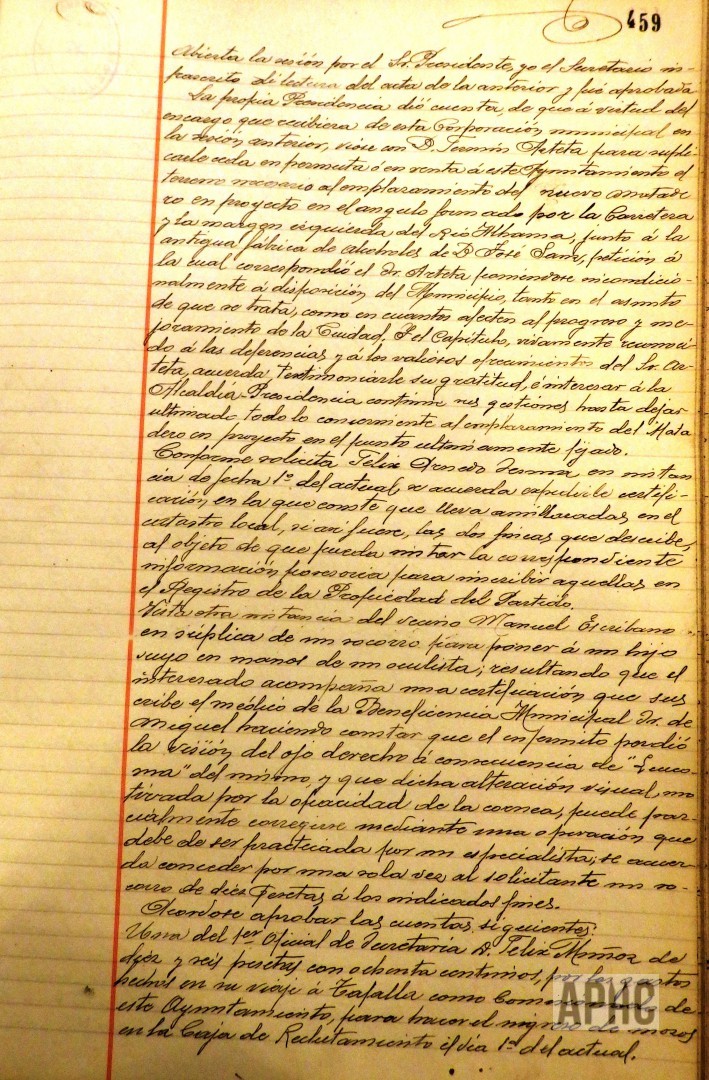 459
Abierta la sesión por el Sr. Presidente, yo el Secretario in-
frascrito di lectura del acta de la anterior y fué aprobada
La propia Presidencia dió cuenta, de que á virtud del
encargo que recibiera de esta Corporación municipal en
la sesión anterior, vióse con D. Fermín Arteta para supli-
carle ceda en permuta ó en venta á este Ayuntamiento el
terreno necesario al emplazamiento del nuevo matade
ro en proyecto en el angulo formado por la Carretera
y la margen izquierda del Rio Alhama, junto á la
antigua fábrica de alcoholes de D. José Sanz, petición á
la cual correspondió el Sr. Arteta poniendose incondicio-
nalmente á disposición del Municipio, tanto en el asunto
de que se trata, como en cuantos afecten al progreso y me-
joramiento de la Ciudad. Y el Capitulo, vivamente reconoci-
do á las deferencias y á los valiosos ofrecimientos del Sr. Ar-
teta, acuerda testimoniarle su gratitud, é interesar á la
Alcaldía-Presidencia continúe sus gestiones hasta dejar
ultimado todo lo concerniente al emplazamiento del Mata
dero en proyecto en el punto ultimamente fijado.
Conforme solicita Félix en instan
cia de fecha 1º del actual, se acuerda expedirle certifi-
cación, en la que conste que lleva amillaradas en el
catastro local, si así fuere, las dos fincas que describe,
al objeto de que pueda instar la correspondiente
información posesoria para inscribir aquellas en
el Registro de la Propiedad del Partido.
Vista otra instancia del vecino Manuel Escribano
en súplica de un socorro para poner á un hijo
suyo en manos de un oculista; resultando que el
interesado acompaña una certificación que sus
cribe el médico de la Beneficencia Municipal Sr. de
Miguel haciendo constar que el enfermito perdió
la visión del ojo derecho á consecuencia de "Leuco-
ma" del mismo, y que dicha alteración visual, mo
tivada por la opacidad de la cornea, puede par-
cialmente corregirse mediante una operación que
debe de ser practicada por un especialista; se acuer-
da conceder por una sola vez al solicitante un so-
corro de diez Pesetas á los indicados fines.
Acordose aprobar las cuentas, siguientes:
Una del 1er Oficial de Secretaría D. Félix Muñoz de
diez y seis pesetas con ochenta centimos, por los gastos
hechos en su viaje á Tafalla como Comisionado de
este Ayuntamiento, para hacer el ingreso de mozos
en la Caja de Reclutamiento el día 1º del actual.
APHC